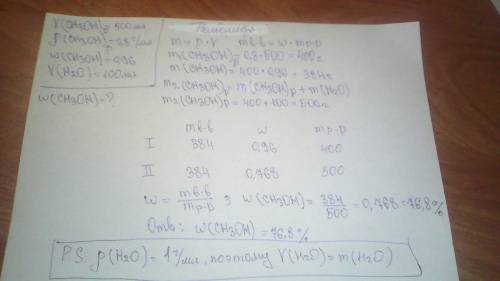 V(CH3OH)р = 500мл
ρ(CH3OH)р = 0,8 г/мл
w(CH3OH) = 0,96
V(H2O) = 100мл
w(CH3OH) = ?
Решение
m = ρ · V mв-в = w · mр-р
m1(CH3OH)р = 0,8 · 500 = 400г
m(CH3OH) = 400 · 0,96 = 384г
m2(CH3OH)р = m(CH3OH)р + m(H2O)
m2(CH3OH)р = 400 + 100 = 500г
mв-в w mр-р
I 384 0,96 400
II 384 0,768 500
w = mв-в/mр-р ; w(CH3OH) = 384/500 = 0,768 = 76,8%
Отв: w(CH3OH) = 76,8%
P.S. ρ(H2O) = 1 г/мл, поэтому V(H2O) = m(H2O)